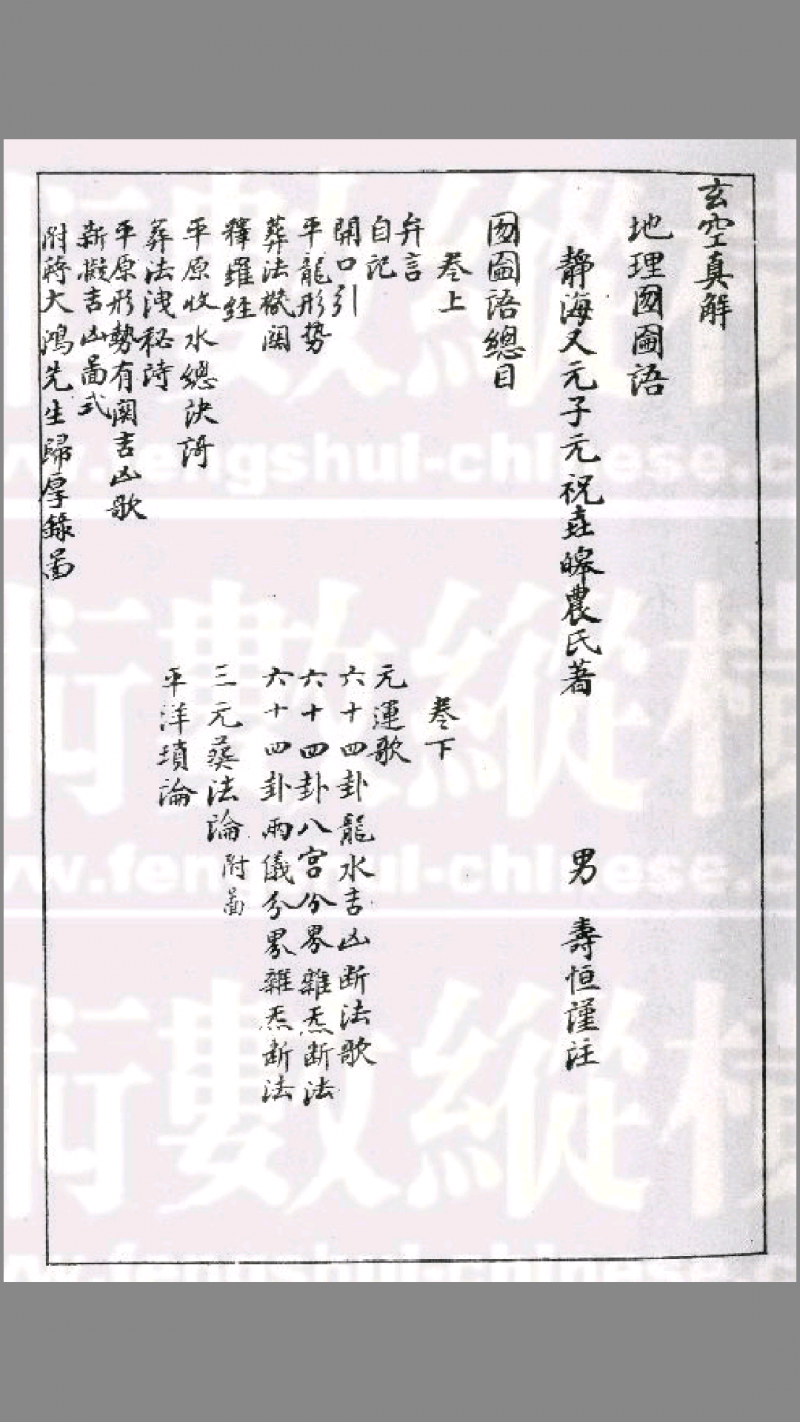 玄空真解
地理囫圇語
靜海又元子元祝垚皞農氏著 男 壽恒謹注
囫圇語總目
卷上
弁言
自記
開口引
平龍形势
葬法機關
釋羅經
平原收水總決詩
葬法洩秘詩
平原形勢有関吉凶歌
新擬吉凶啚式
附蔣大鴻先生歸厚錄啚
卷下
元運歌
六十四卦龍水吉凶断法歌
六十四卦八宫分界雜炁断法
六十四卦兩儀分界雜炁断法
三元葬法論 附啚
平洋墳論
術數縱橫
www.fengshui-chinese.c
術數縱橫
www.fengshui-chinese.c
術數縱橫
www.fengshui-chinese